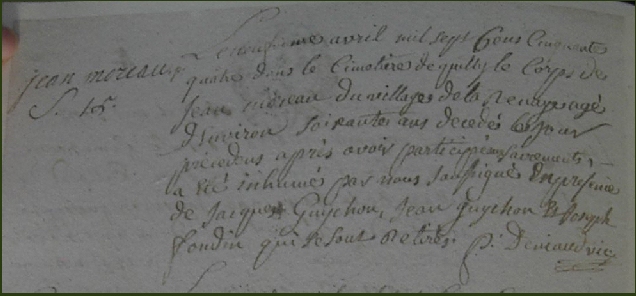 jean moreau
S. 15s.
Le onzieme avril mil sept Cens Cinquante
quatre dans le Cimetiere de quilly le Corps de
Jean moreau du village de la Renays agé
D'environ soixantes ans decedé le jour
precedens après avoir participé aux sacrements
a été inhumés par nous soussigné En presence
de Jacques Guychon, Jean guychon & Joseph
fondin qui se sont Retirés. p. Deniaud vic